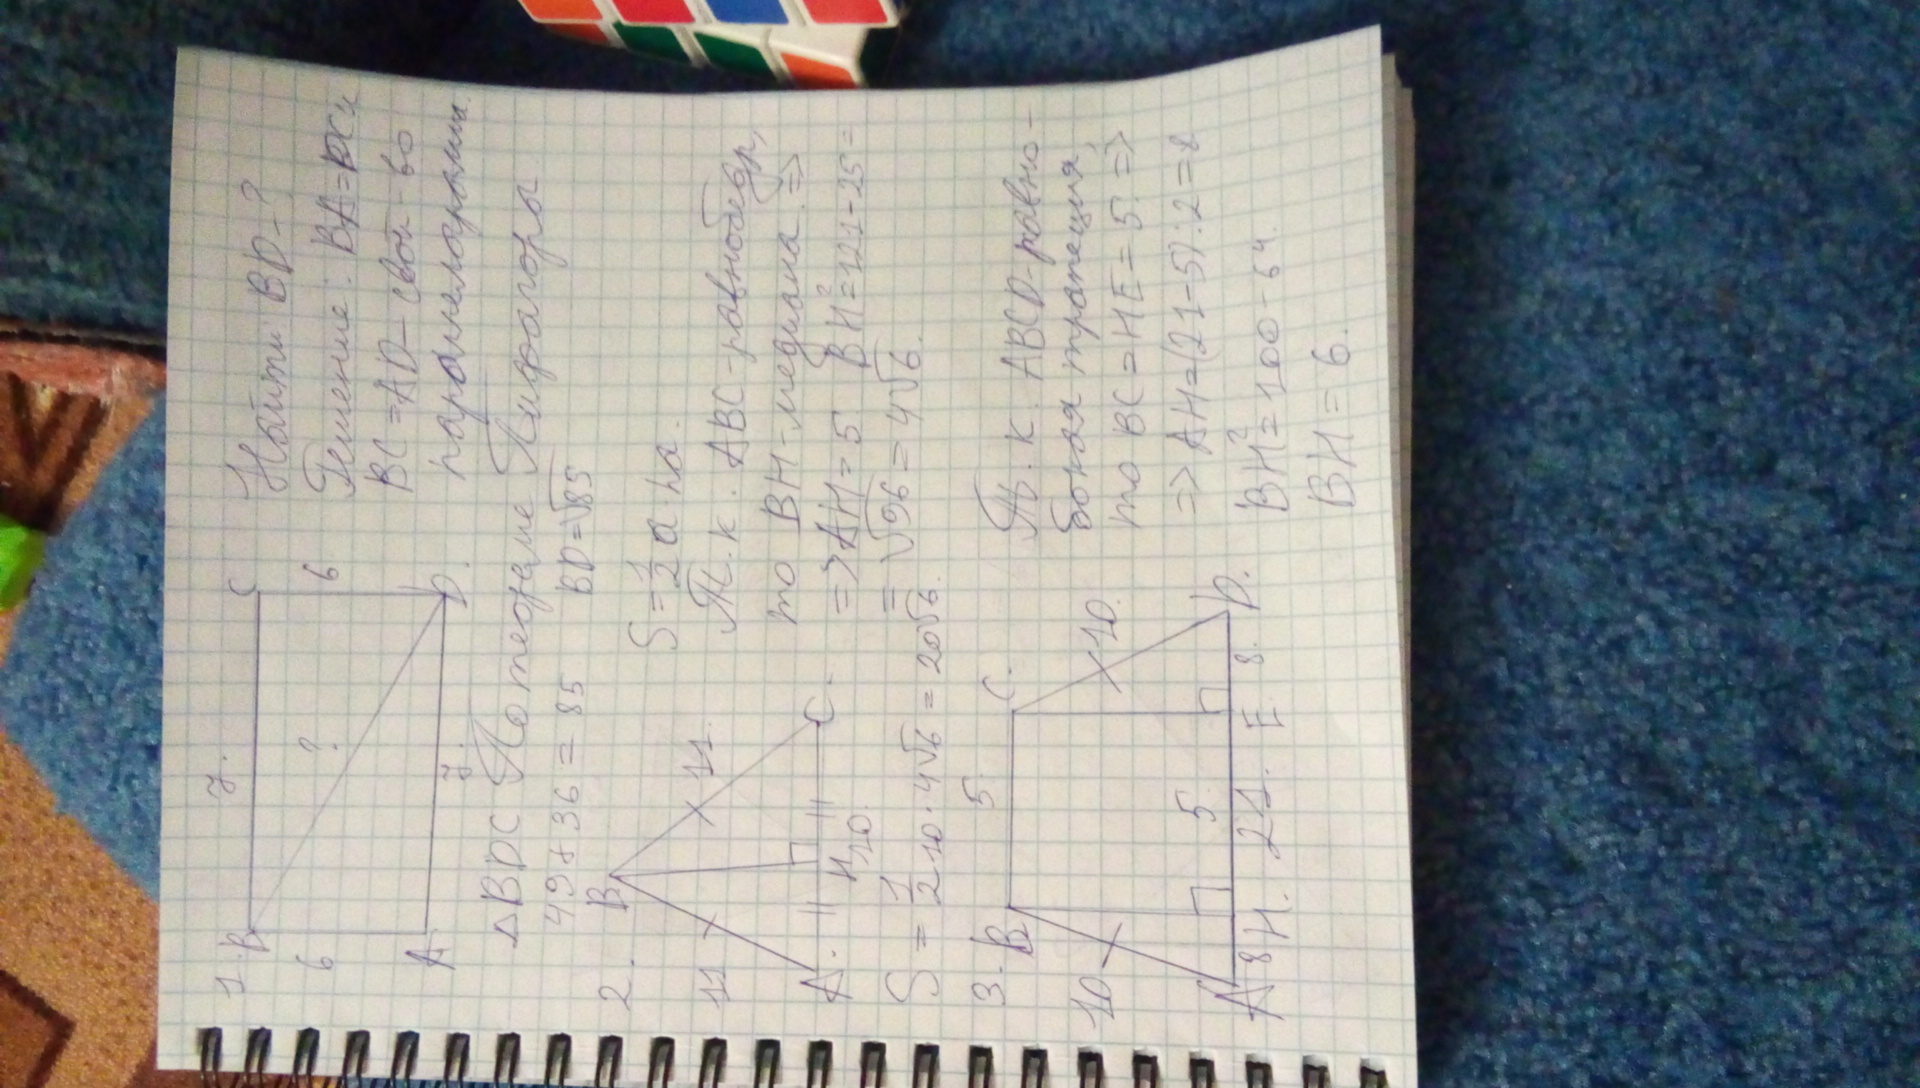 1. B 7. C
6 ? 6
A 7. D.
Найти: BD-?
Решение: BA=DC и
BC=AD-свой-во
параллелограмма.
△BDC По теореме Пифагора
49+36=85 BD=√85
2. B
11 11.
A. H C.
10.
S=1/2 a·ha.
Т.к. ABC-равнобедр,
то BH-медиана =>
=> AH=5 BH²=121-25=
=√96=4√6.
S=1/2 10·4√6=20√6.
3. B 5. C.
10 10.
5
A 8 H. 21. E. 8. D.
Т.к. ABCD-равно-
бокая трапеция,
то BC=HE=5 =>
=> AH=(21-5):2=8
BH²=100-64.
BH=6.